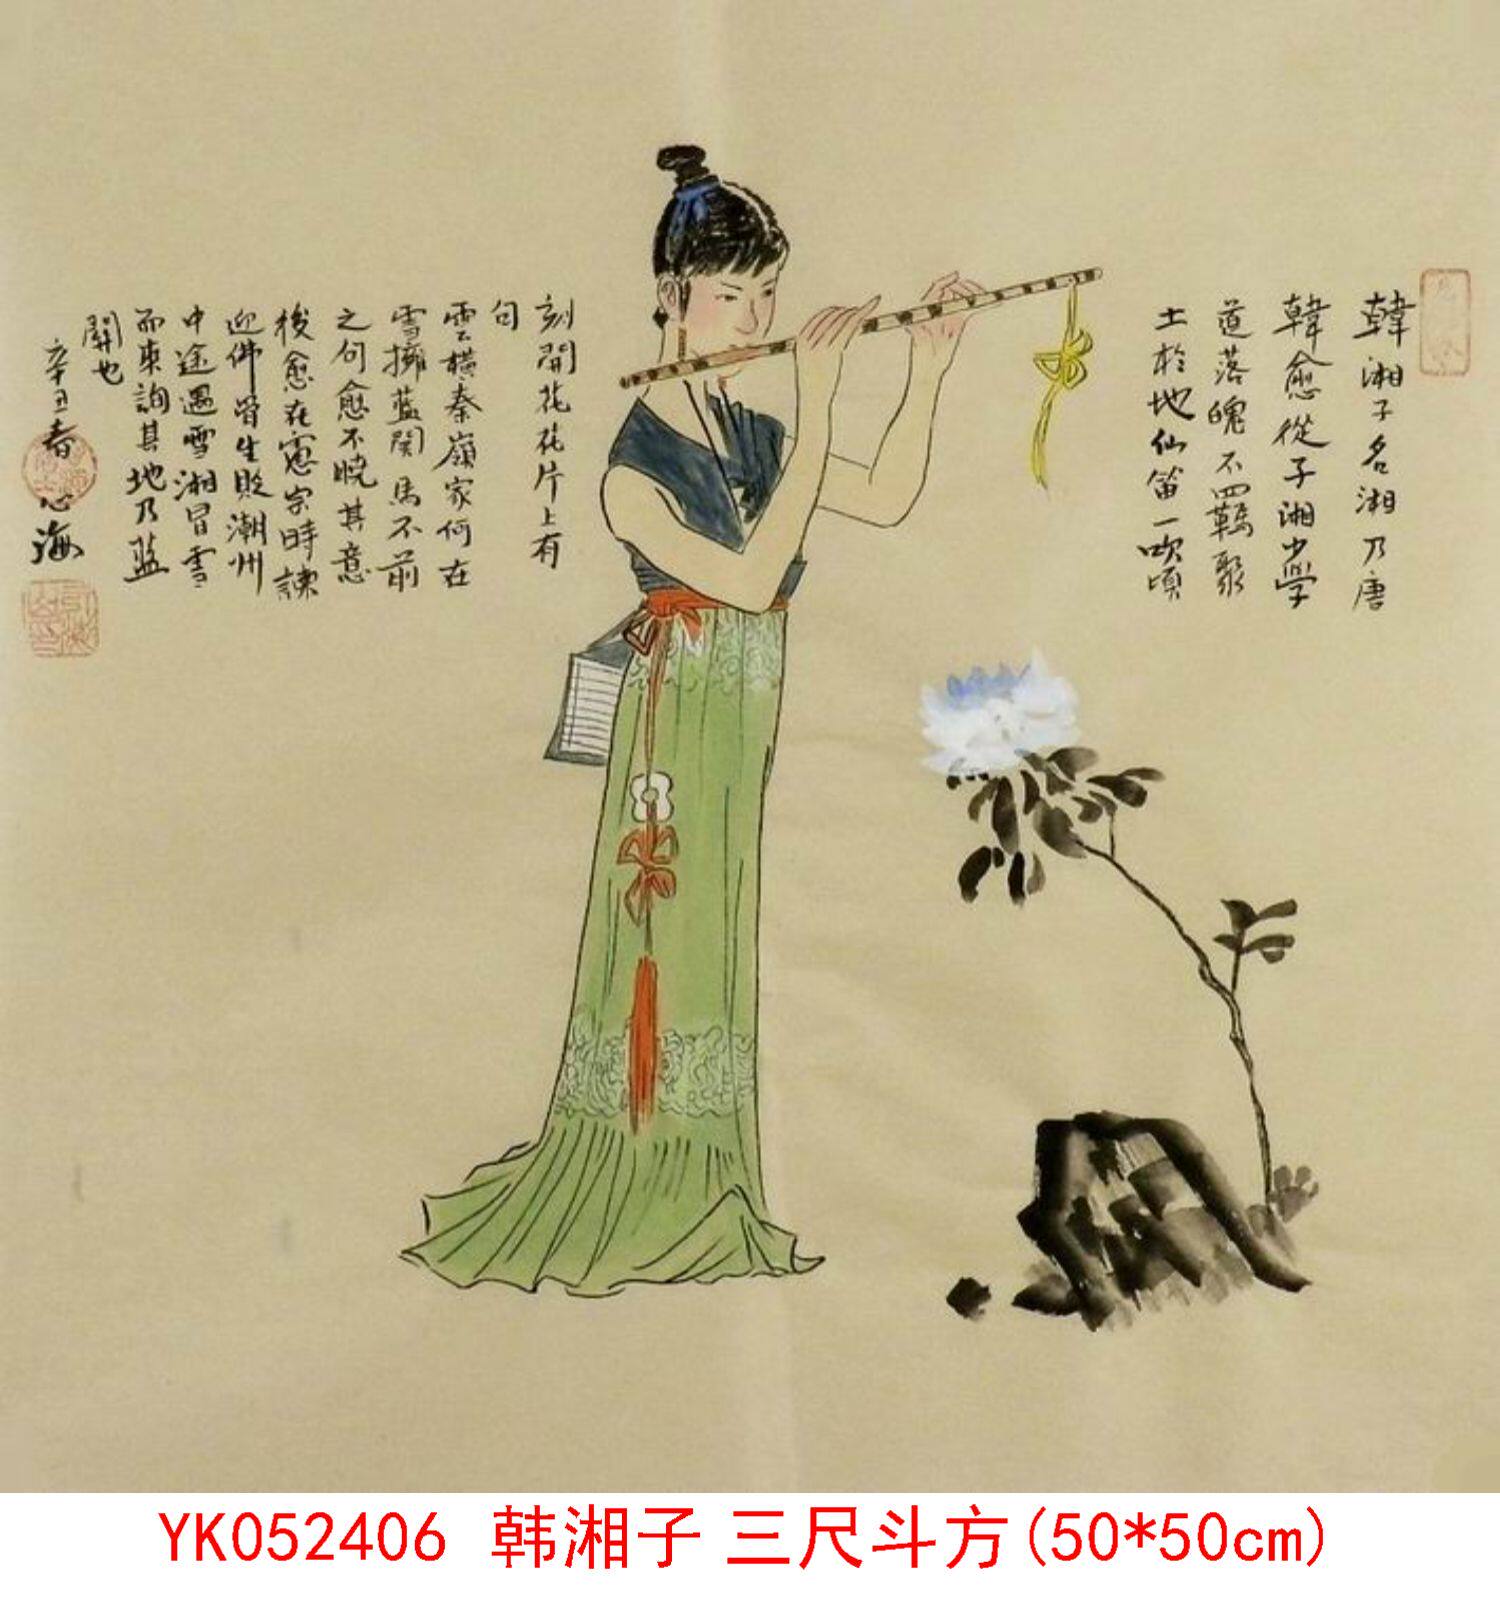 韓湘子名湘乃唐
韓愈從子湘少学
道落魄不羈聚
土於地仙笛一吹頃
刻開花花片上有
句
雲横秦嶺家何在
雪擁藍関馬不前
之句愈不晓其意
後愈在憲宗時諌
迎佛骨生貶潮州
中途遇雪湘冒雪
而来詢其地乃藍
関也
辛丑春
心海
YK052406 韩湘子 三尺斗方(50*50cm)